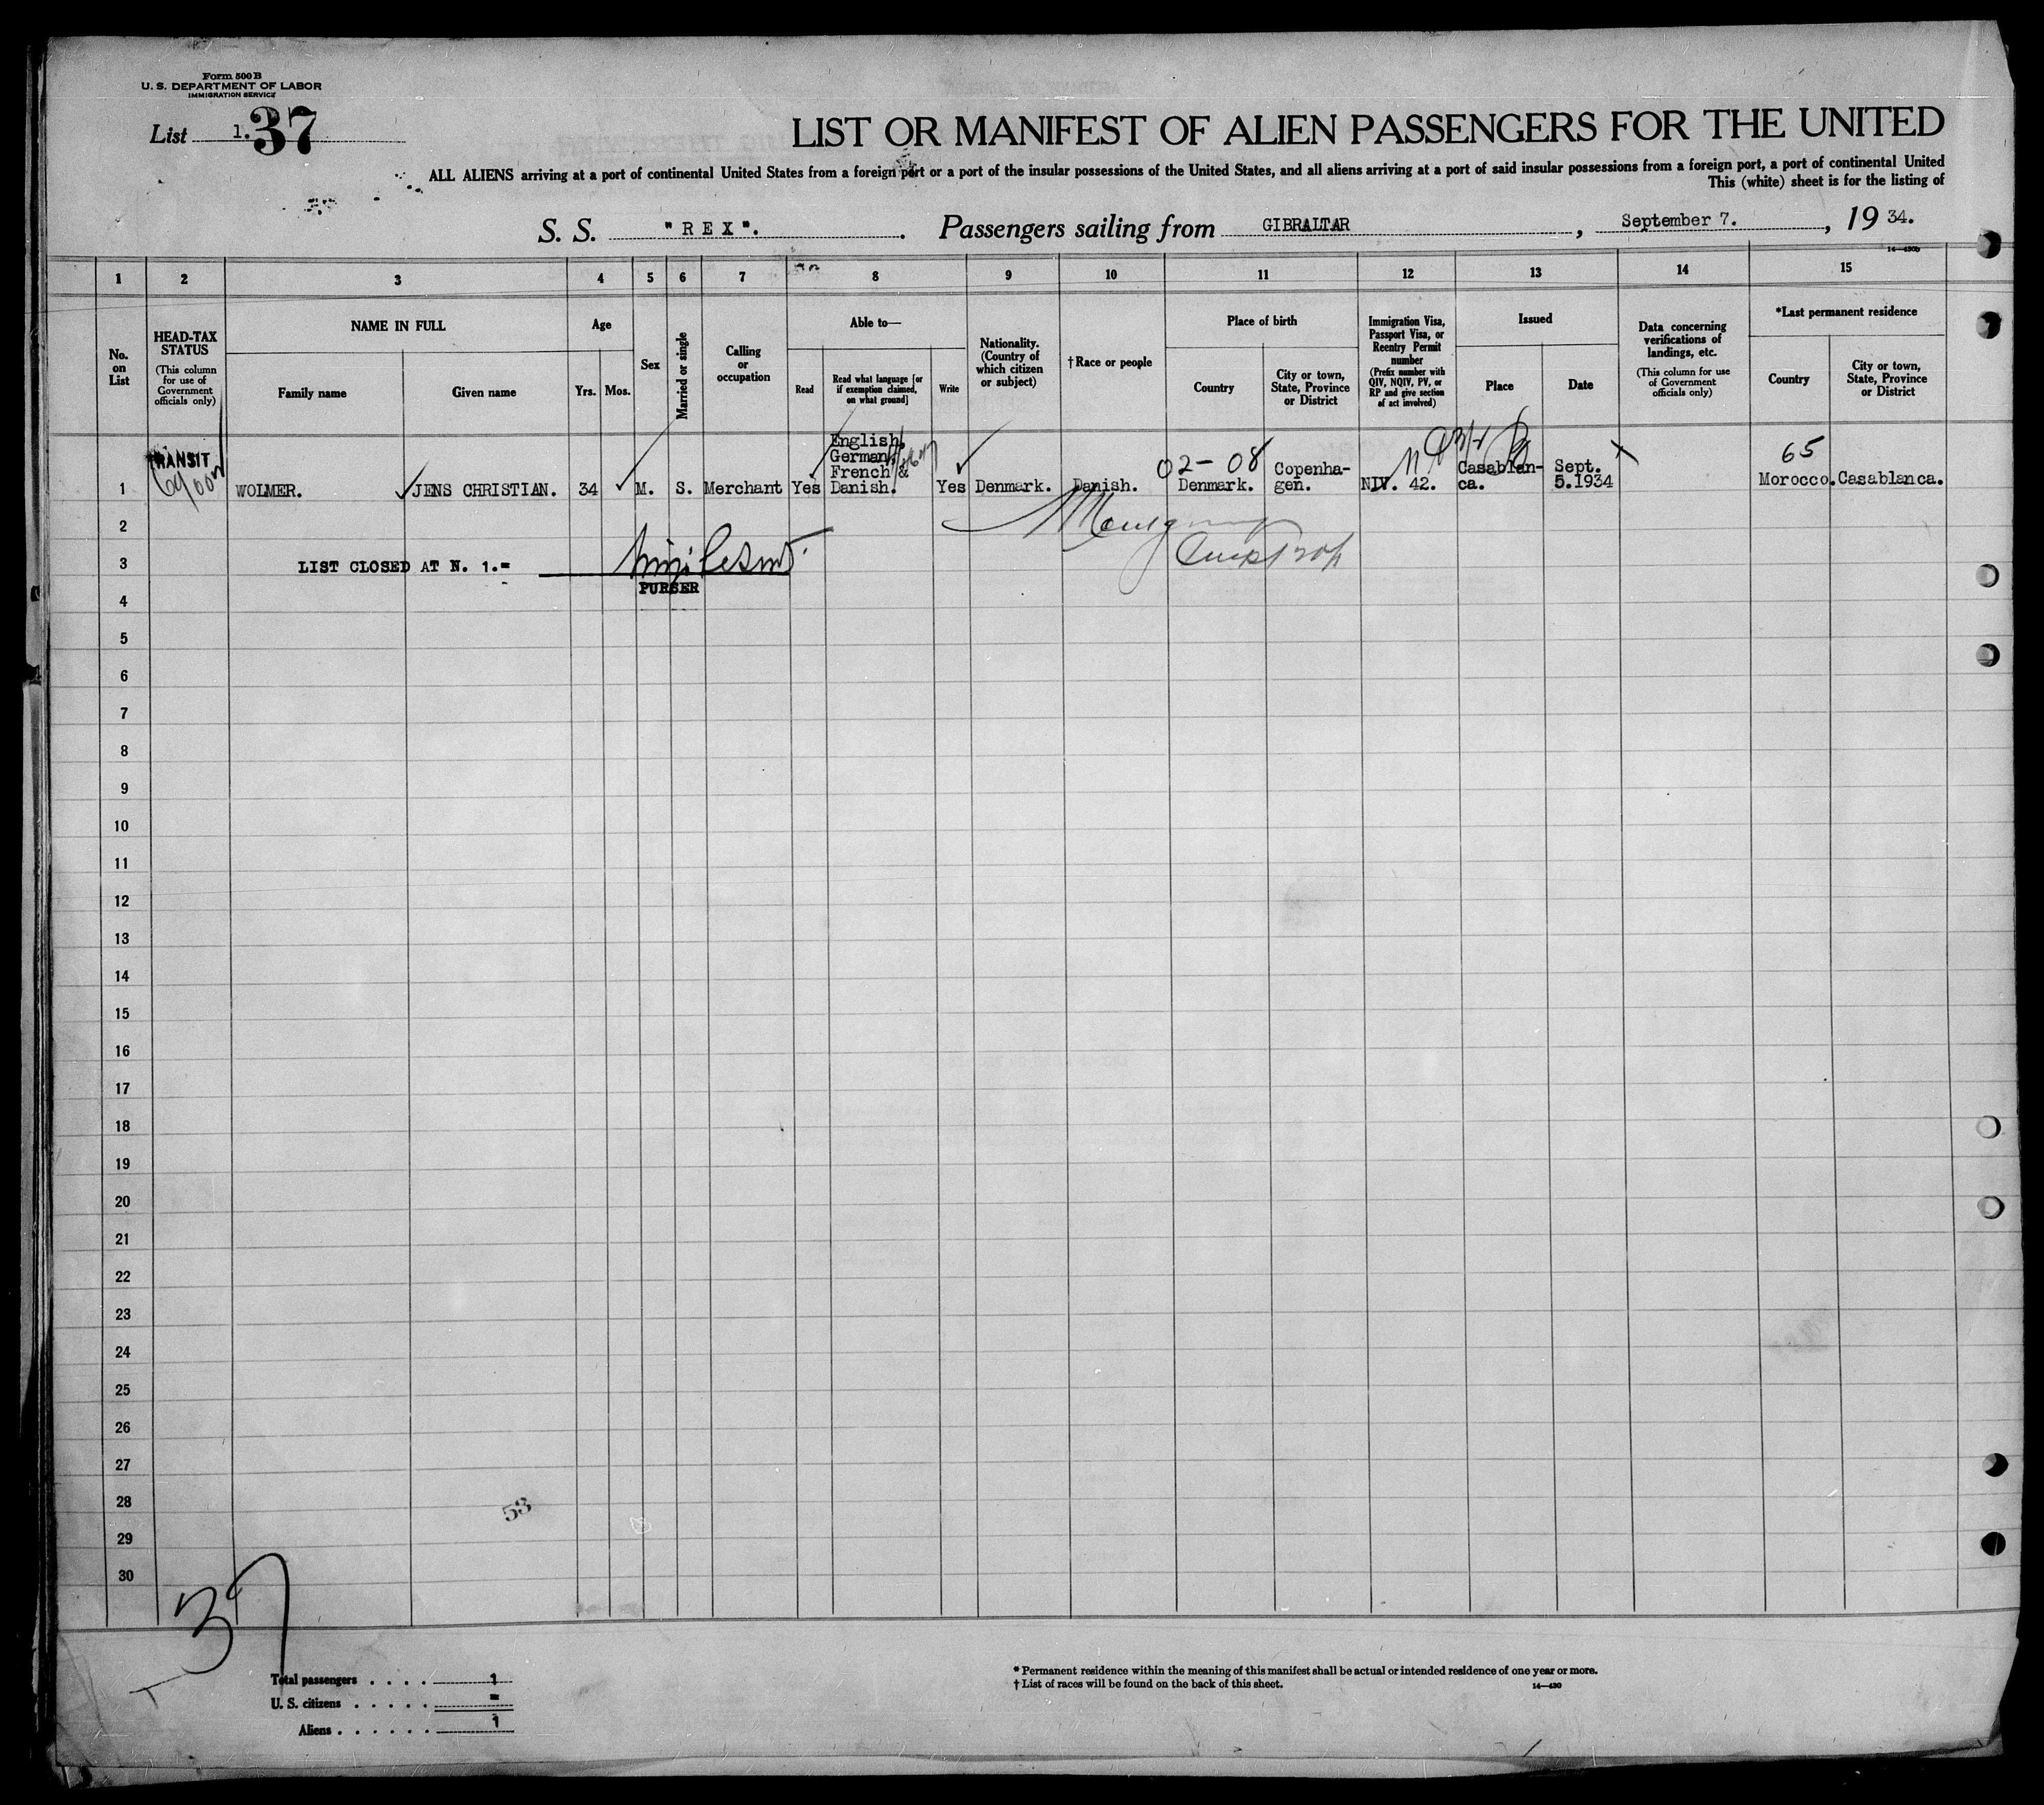 Form 500 B
U. S. DEPARTMENT OF LABOR
IMMIGRATION SERVICE
List 1. 37
LIST OR MANIFEST OF ALIEN PASSENGERS FOR THE UNITED
ALL ALIENS arriving at a port of continental United States from a foreign port or a port of the insular possessions of the United States, and all aliens arriving at a port of said insular possessions from a foreign port, a port of continental United
This (white) sheet is for the listing of
S. S. "REX". Passengers sailing from GIBRALTAR, September 7., 19 34.
14—430b
1 2 3 4 5 6 7 8 9 10 11 12 13 14 15
No. on List
HEAD-TAX STATUS
(This column for use of Government officials only)
NAME IN FULL
Family name
Given name
Age
Yrs. Mos.
Sex
Married or single
Calling or occupation
Able to—
Read
Read what language [or if exemption claimed, on what ground]
Write
Nationality. (Country of which citizen or subject)
†Race or people
Place of birth
Country
City or town, State, Province or District
Immigration Visa, Passport Visa, or Reentry Permit number
(Prefix number with QIV, NQIV, PV, or RP and give section of act involved)
Issued
Place
Date
Data concerning verifications of landings, etc.
(This column for use of Government officials only)
*Last permanent residence
Country
City or town, State, Province or District
TRANSIT
02-08
65
1 WOLMER. JENS CHRISTIAN. 34 M. S. Merchant Yes English, German, French & Danish. Yes Denmark. Danish. Denmark. Copenha-gen. NIV. 42. Casablan-ca. Sept. 5.1934 Morocco. Casablanca.
2
3 LIST CLOSED AT N. 1.=
PURSER
4
5
6
7
8
9
10
11
12
13
14
15
16
17
18
19
20
21
22
23
24
25
26
27
28
53
29
30
37
Total passengers . . . . 1
U. S. citizens . . . . . =
Aliens . . . . . . 1
* Permanent residence within the meaning of this manifest shall be actual or intended residence of one year or more.
† List of races will be found on the back of this sheet.
14—430